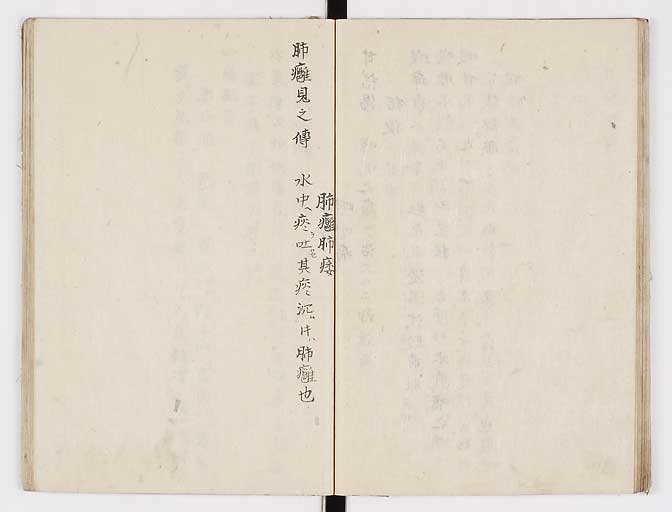 肺癰肺痿
肺癰見之傳 水中ヘ痰ヲ吐セ其痰沉ム片ハ肺癰也